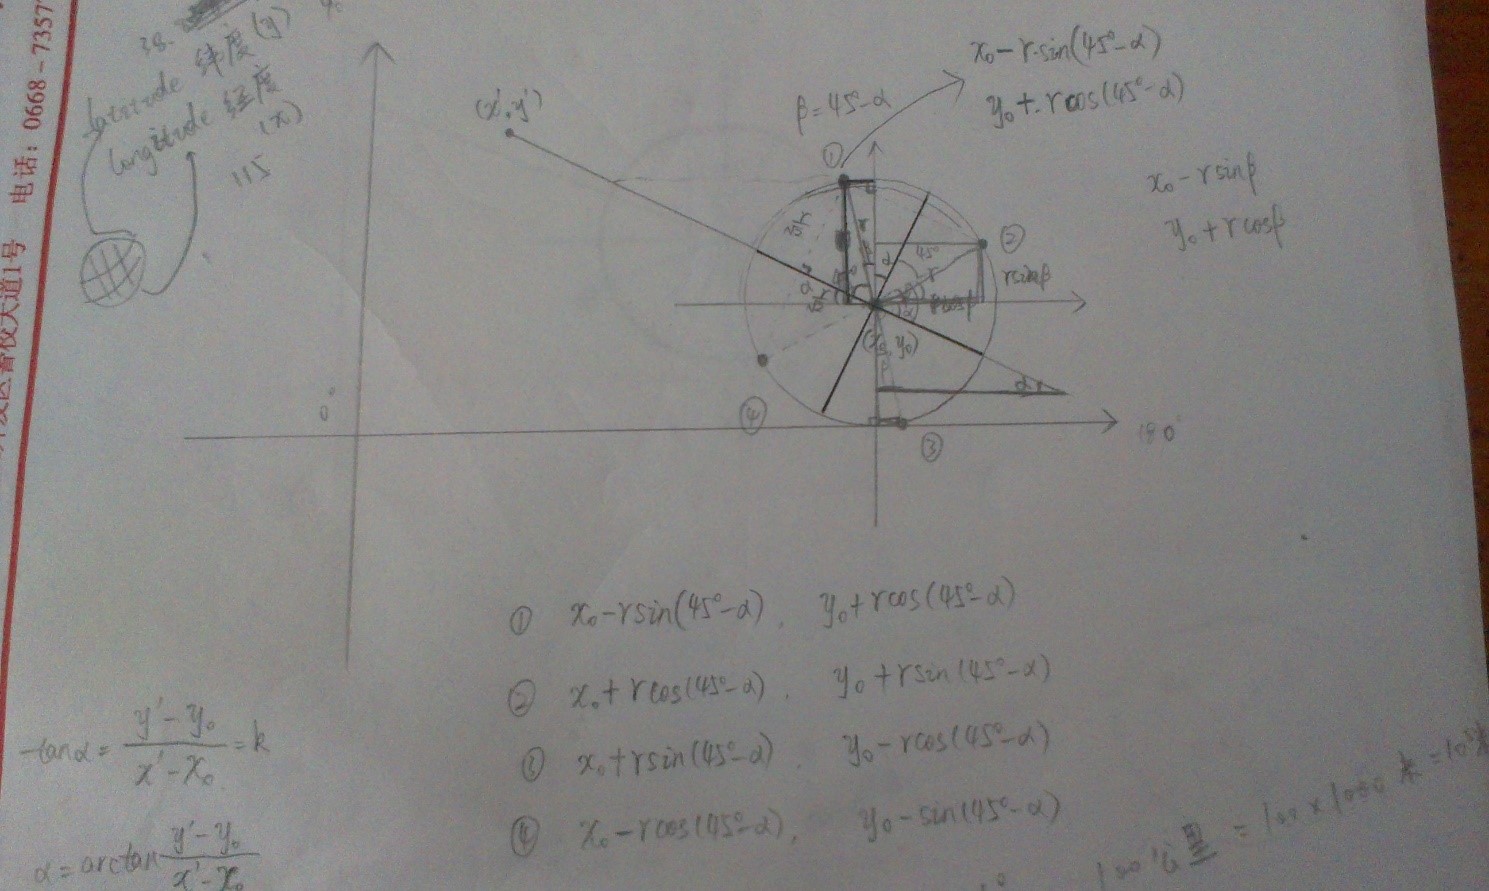 电话：0668-7357
大道1号
38.
latitude 纬度(y)
longitude 经度
(x)
115
y₀
(x',y')
β=45°-α
x₀-r·sin(45°-α)
y₀+rcos(45°-α)
x₀-rsinβ
y₀+rcosβ
①
②
45°
α
r
rsinβ
rcosβ
(x₀,y₀)
β
α
④
③
0°
180°
① x₀-rsin(45°-α), y₀+rcos(45°-α)
② x₀+rcos(45°-α), y₀+rsin(45°-α)
③ x₀+rsin(45°-α), y₀-rcos(45°-α)
④ x₀-rcos(45°-α), y₀-sin(45°-α)
-tanα = (y'-y₀)/(x'-x₀) = k
α = arctan (y'-y₀)/(x'-x₀)
100公里 = 100×1000米 = 10⁵米